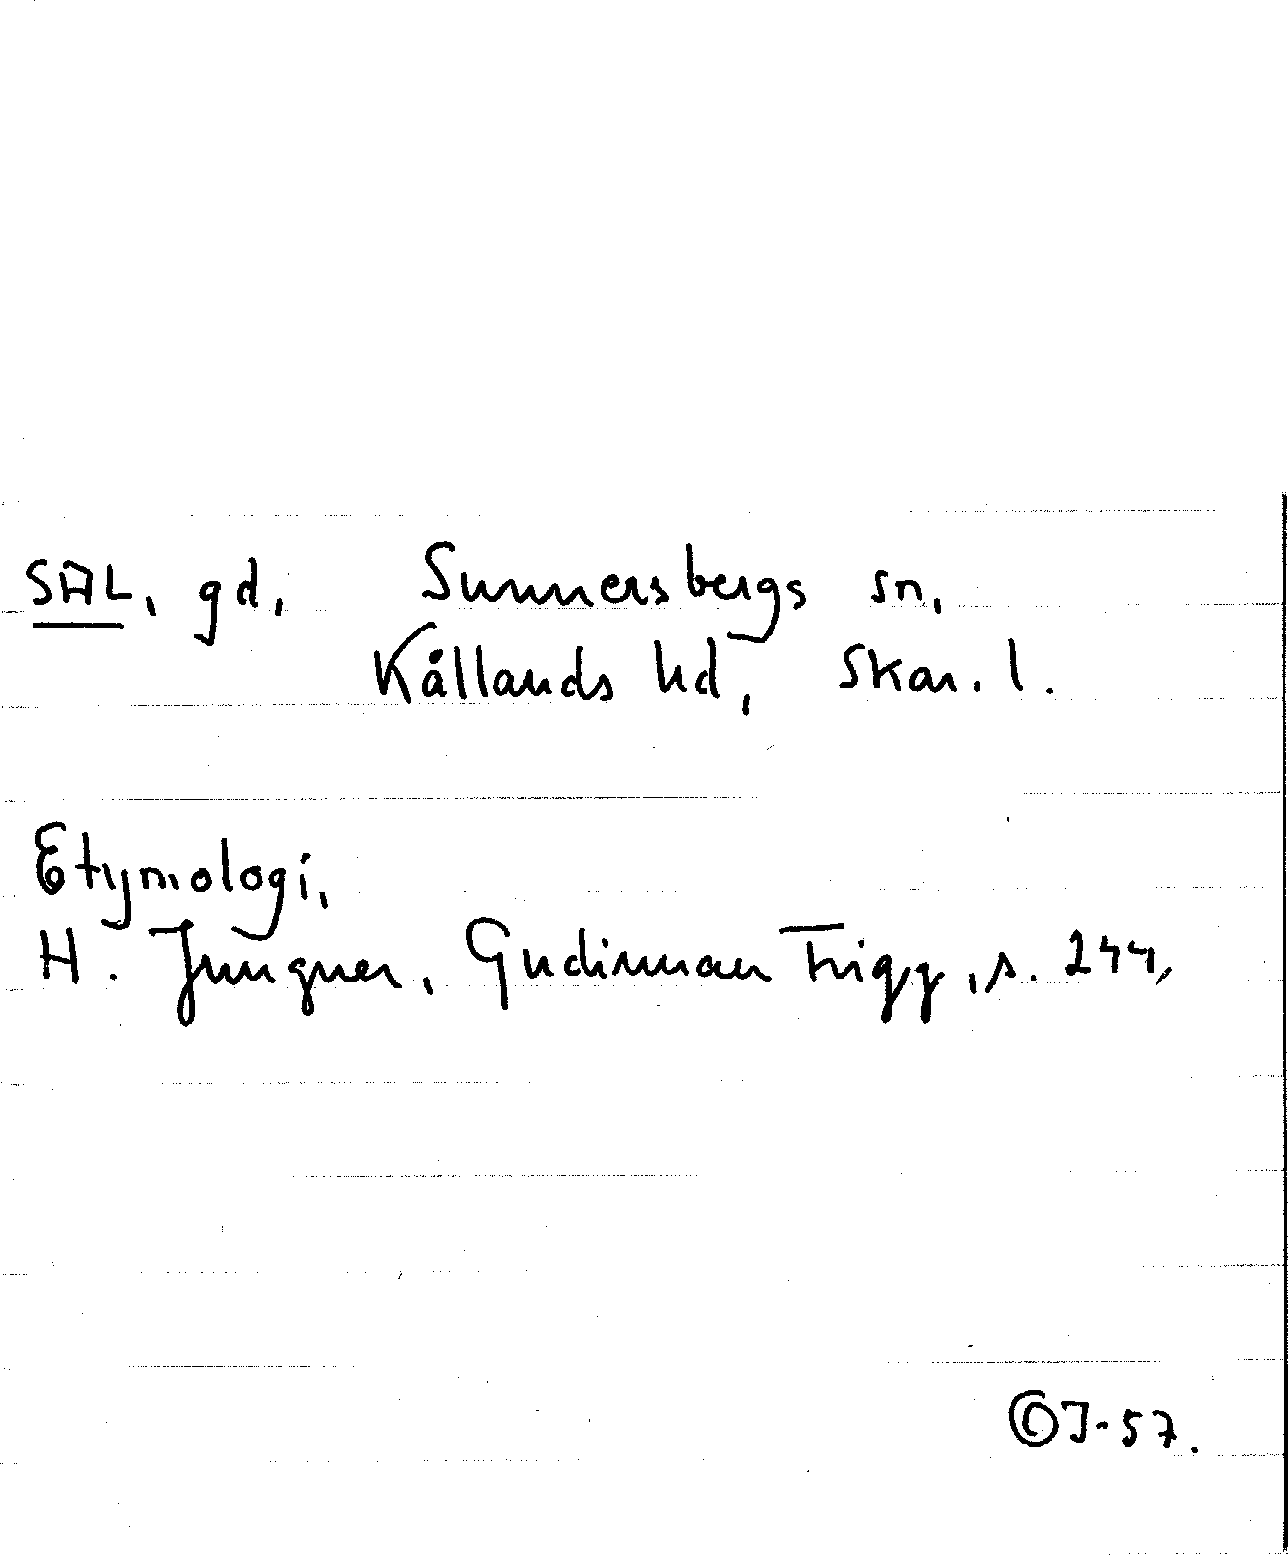 SAL, gd, Sunnersbergs sn,
Kållands hd, Skar. l.
Etymologi,
H. Jungner, Gudinnan Frigg, s. 244,
OJ-57.